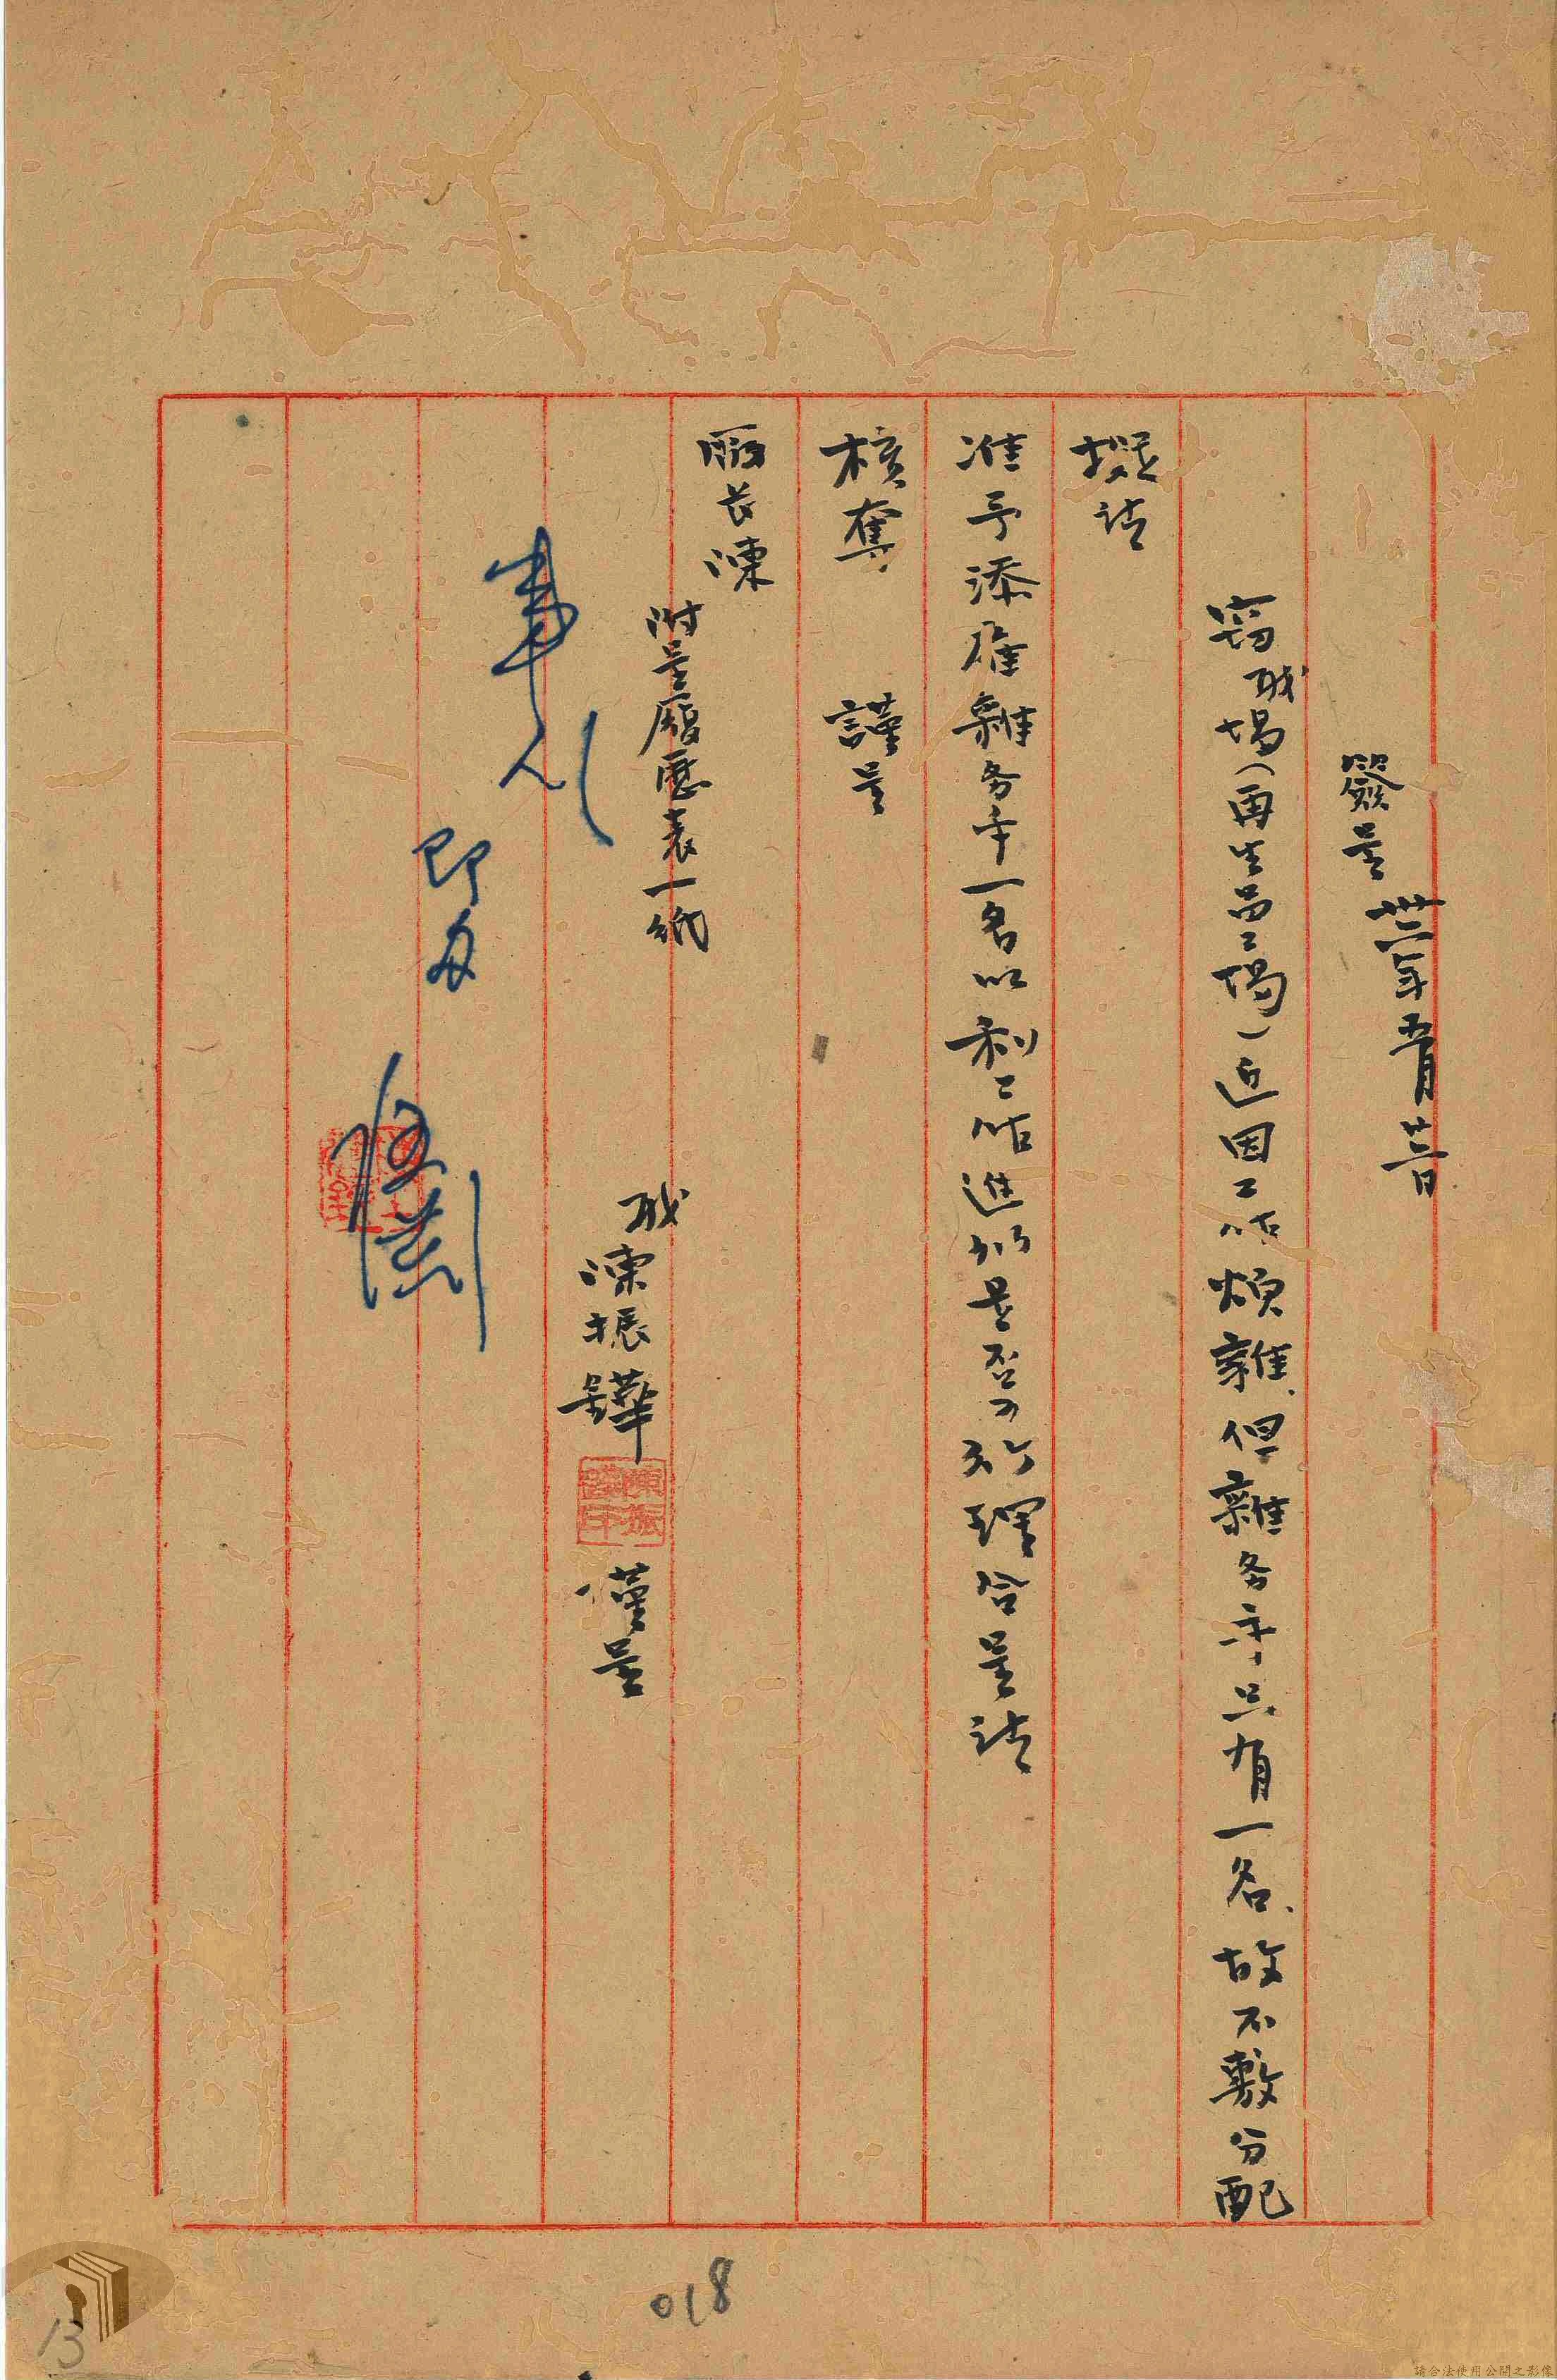 簽呈 卅六年五月廿二日
竊職場(再生品工場)近因工作煩雜、但雜務手只有一名、故不敷分配
擬請
准予添雇雜务手一名以利工作進行是否可行理合呈請
核奪 謹呈
廠長陳
附呈履歷表一紙
職陳振鏵 謹呈
018
13
請合法使用公開之影像